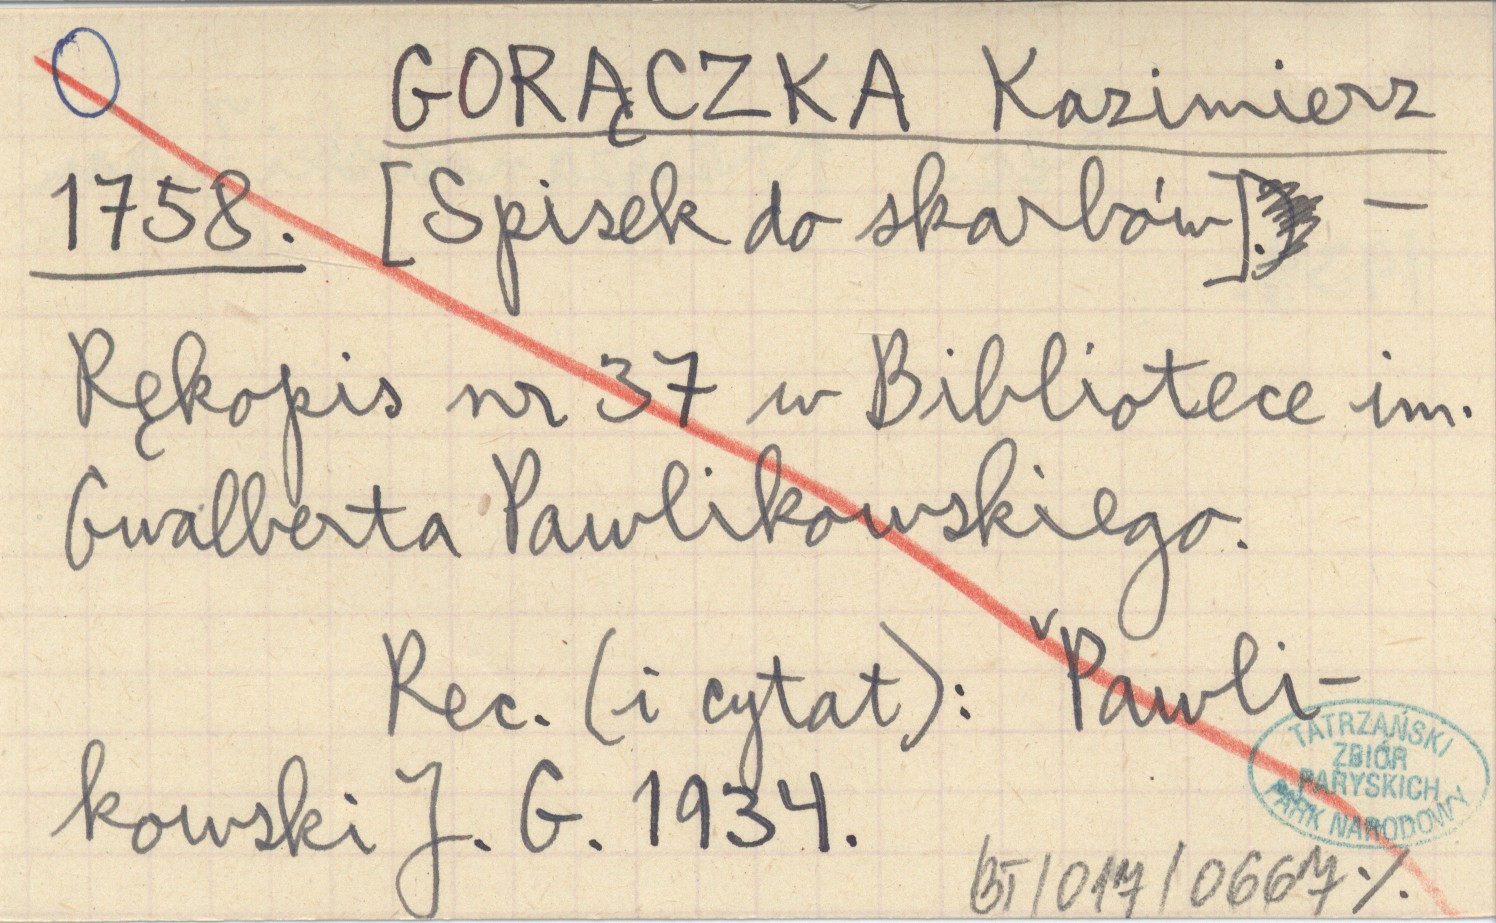 GORĄCZKA Kazimierz
1758. [Spisek do skarbów]. —
Rękopis nr 37 w Bibliotece im.
Gwalberta Pawlikowskiego.
Rec. (i cytat): Pawli-
kowski J. G. 1934.
TATRZAŃSKI
ZBIÓR
PARYSKICH
PARK NARODOWY
BT/017/0667 ./.